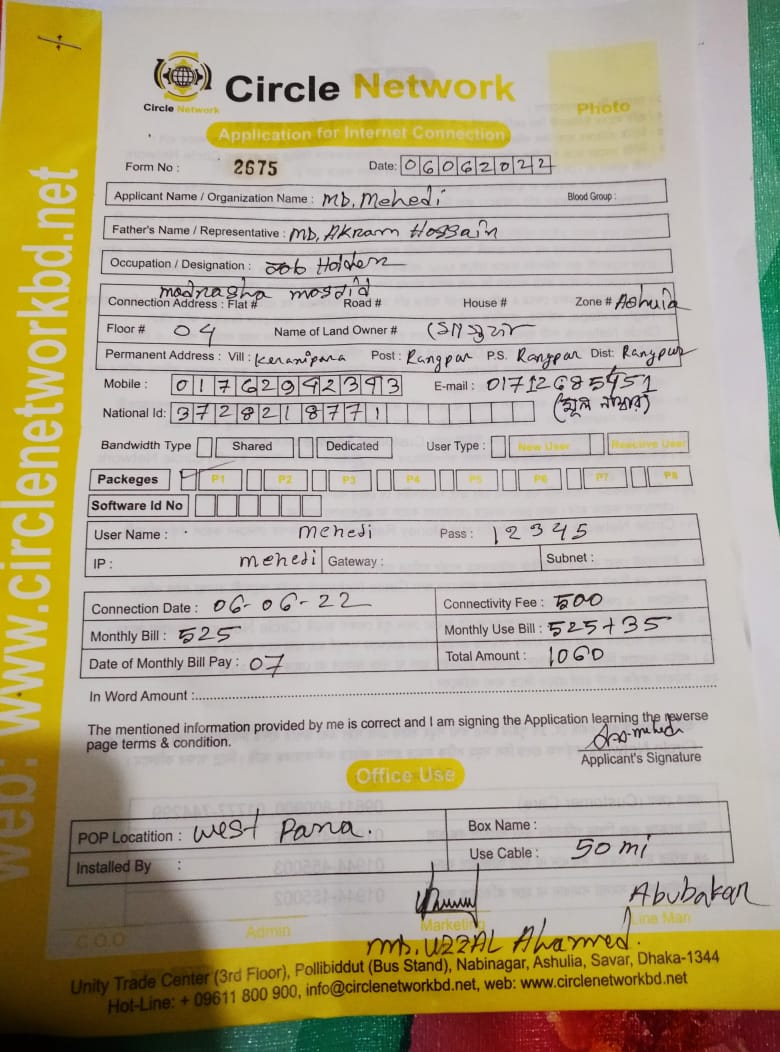 Circle Network
Circle Network
Photo
Application for Internet Connection
Form No : 2675 Date: 06062022
Applicant Name / Organization Name : MD, Mehedi Blood Group :
Father's Name / Representative : MD, AKRam Hossain
Occupation / Designation : Job Holder
madrasha mosjid
Connection Address : Flat # Road # House # Zone # Ashulia
Floor # 04 Name of Land Owner #
Permanent Address : Vill : Keranipara Post : Rangpur P.S. Rangpur Dist: Rangpur
Mobile : 01762942393 E-mail : 01712685451
National Id: 3728218771 (মূল নাম্বার)
Bandwidth Type Shared Dedicated User Type : New User Reactive User
Packeges P1 P2 P3 P4 P5 P6 P7 P8
Software Id No
User Name : mehedi Pass : 12345
IP : mehedi Gateway : Subnet :
Connection Date : 06-06-22 Connectivity Fee : 500
Monthly Bill : 525 Monthly Use Bill : 525+35
Date of Monthly Bill Pay : 07 Total Amount : 1060
In Word Amount :
The mentioned information provided by me is correct and I am signing the Application learning the reverse
page terms & condition.
Applicant's Signature
Office Use
POP Locatition : West Para. Box Name :
Installed By : Use Cable : 50 mi
Abubakar
C.O.O Admin Marketing Line Man
MD. UZZAL Ahammed.
Unity Trade Center (3rd Floor), Pollibiddut (Bus Stand), Nabinagar, Ashulia, Savar, Dhaka-1344
Hot-Line: + 09611 800 900, info@circlenetworkbd.net, web: www.circlenetworkbd.net
web: www.circlenetworkbd.net